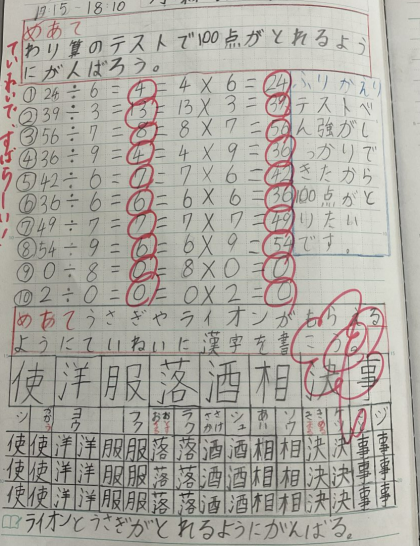 17:15-18:10
めあて
わり算のテストで100点がとれるよう
にがんばろう。
ていねいで すばらしい!
① 24÷6=4=4×6=24
② 39÷3=13=13×3=39
③ 56÷7=8=8×7=56
④ 36÷9=4=4×9=36
⑤ 42÷6=7=7×6=42
⑥ 36÷6=6=6×6=36
⑦ 49÷7=7=7×7=49
⑧ 54÷9=6=6×9=54
⑨ 0÷8=0=8×0=0
⑩ 2÷0=0=0×2=0
ふりかえり
テストべ
ん強がし
っかりで
きたから
100点がと
りたい
です。
めあてうさぎやライオンがもらえる
ようにていねいに漢字を書こう。
使洋服落酒相決事
シ ヨウ フク ラク シュ あい
使使洋洋服服落落酒酒相相決決事事
使使洋洋服服落落酒酒相相決決事事
使使洋洋服服落落酒酒相相決決事事
ライオンとうさぎがとれるようにがんばる。